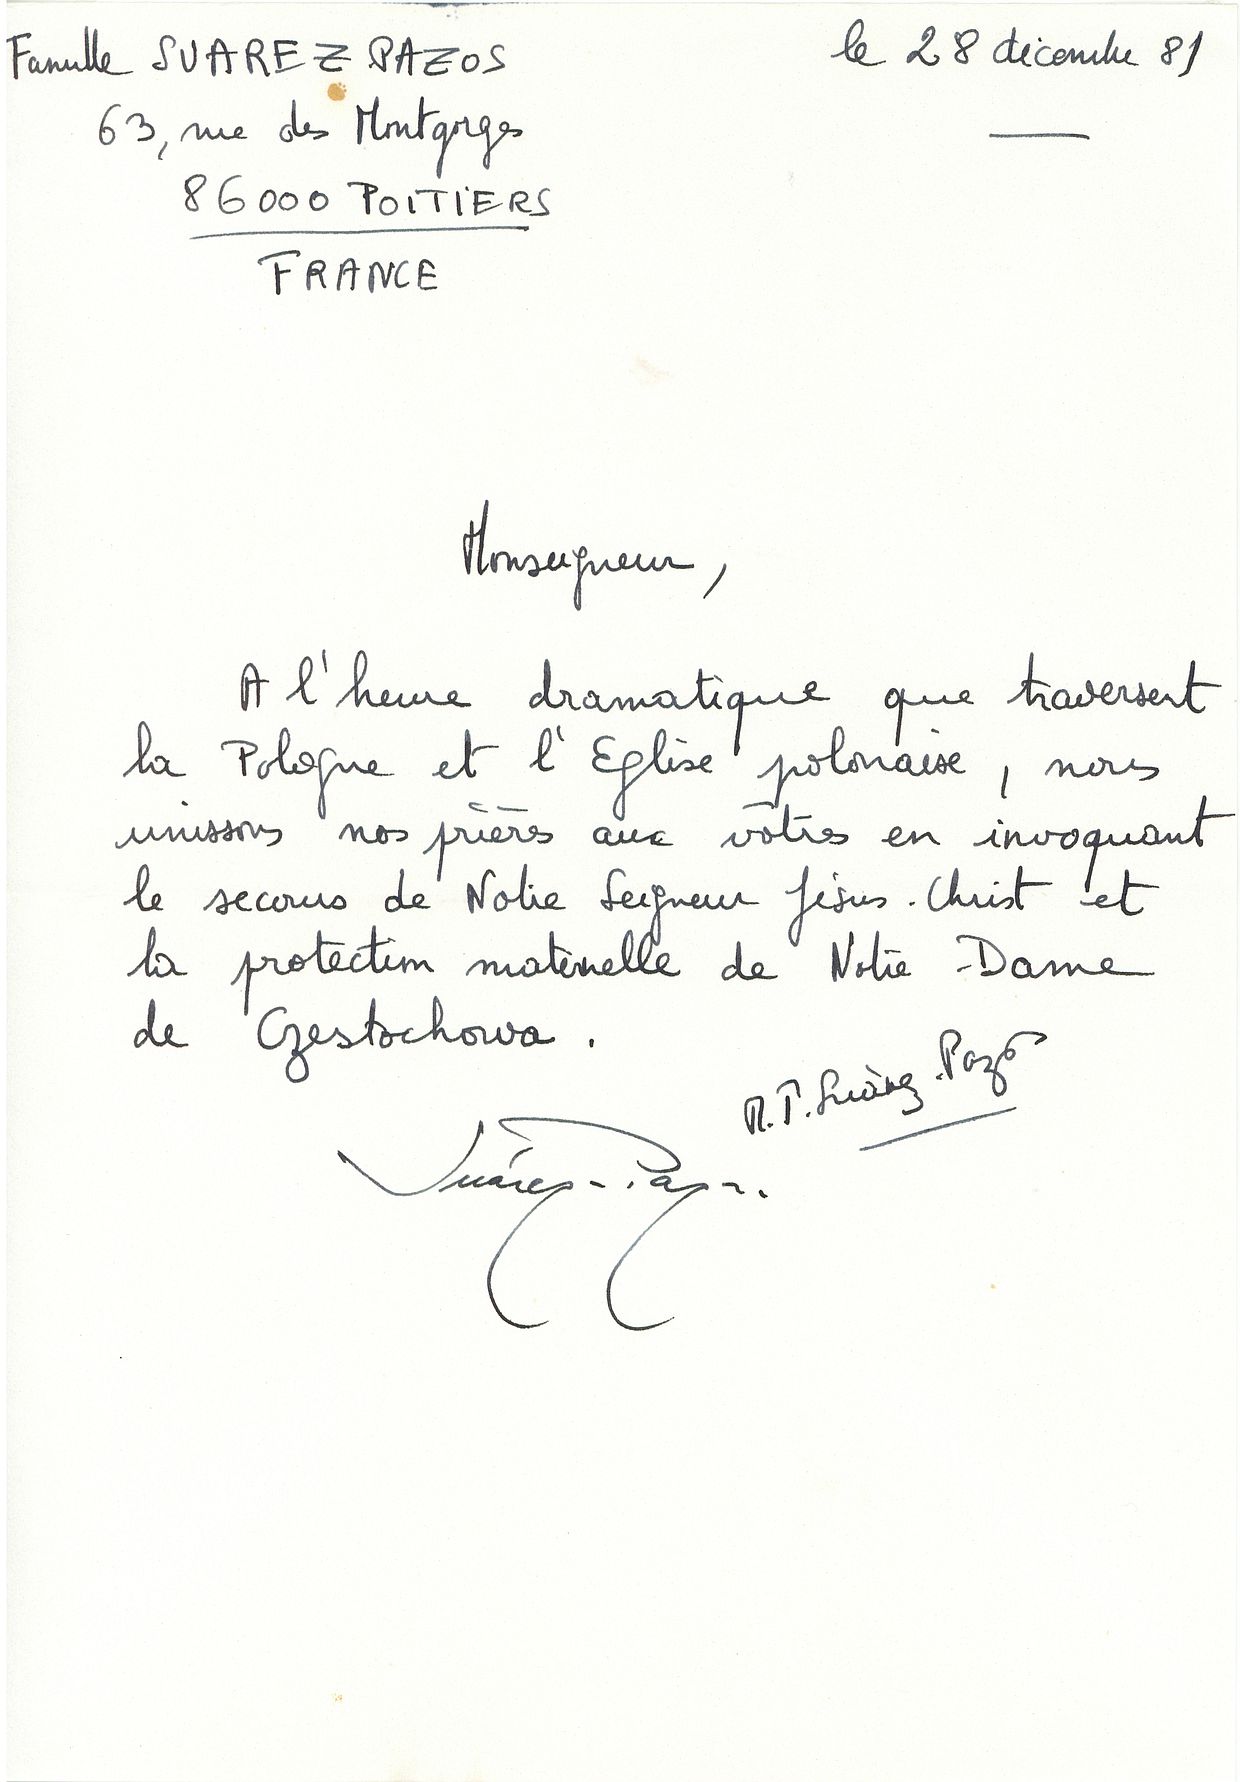 Famille SUAREZ PAZOS
le 28 décembre 81
63, rue des Montgorges
86000 POITIERS
FRANCE
Monseigneur,
A l'heure dramatique que traversent
la Pologne et l'Eglise polonaise, nous
unissons nos prières aux vôtres en invoquant
le secours de Notre Seigneur Jésus-Christ et
la protection maternelle de Notre-Dame
de Częstochowa.
Suárez-Pazo